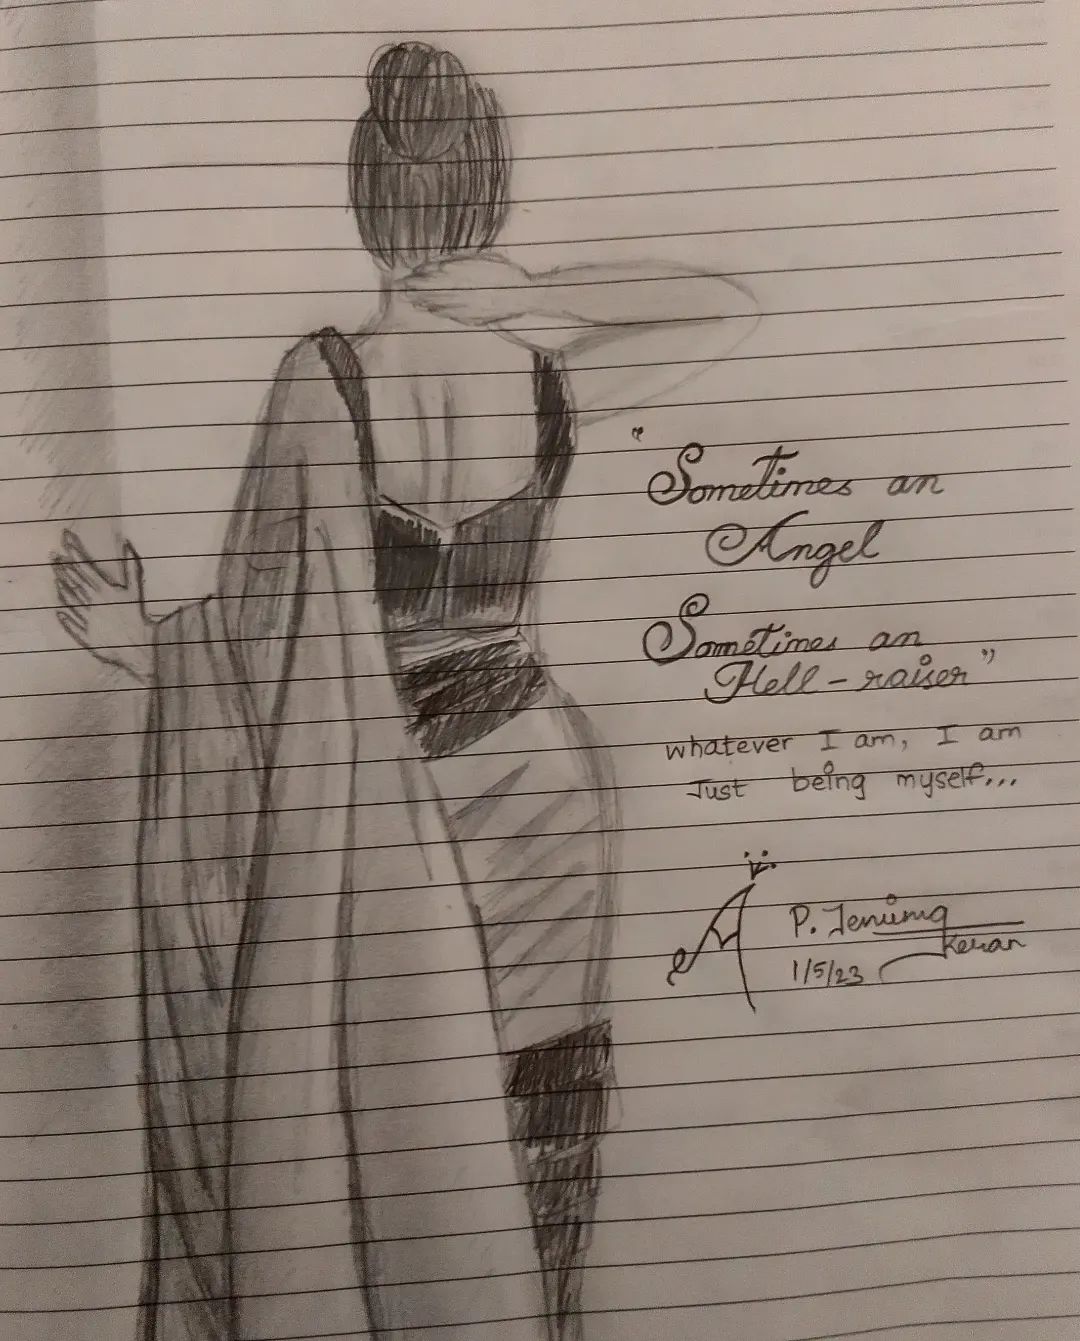 "Sometimes an
Angel
Sometimes an
Hell-raiser"
whatever I am, I am
Just being myself...
P.
1/5/23